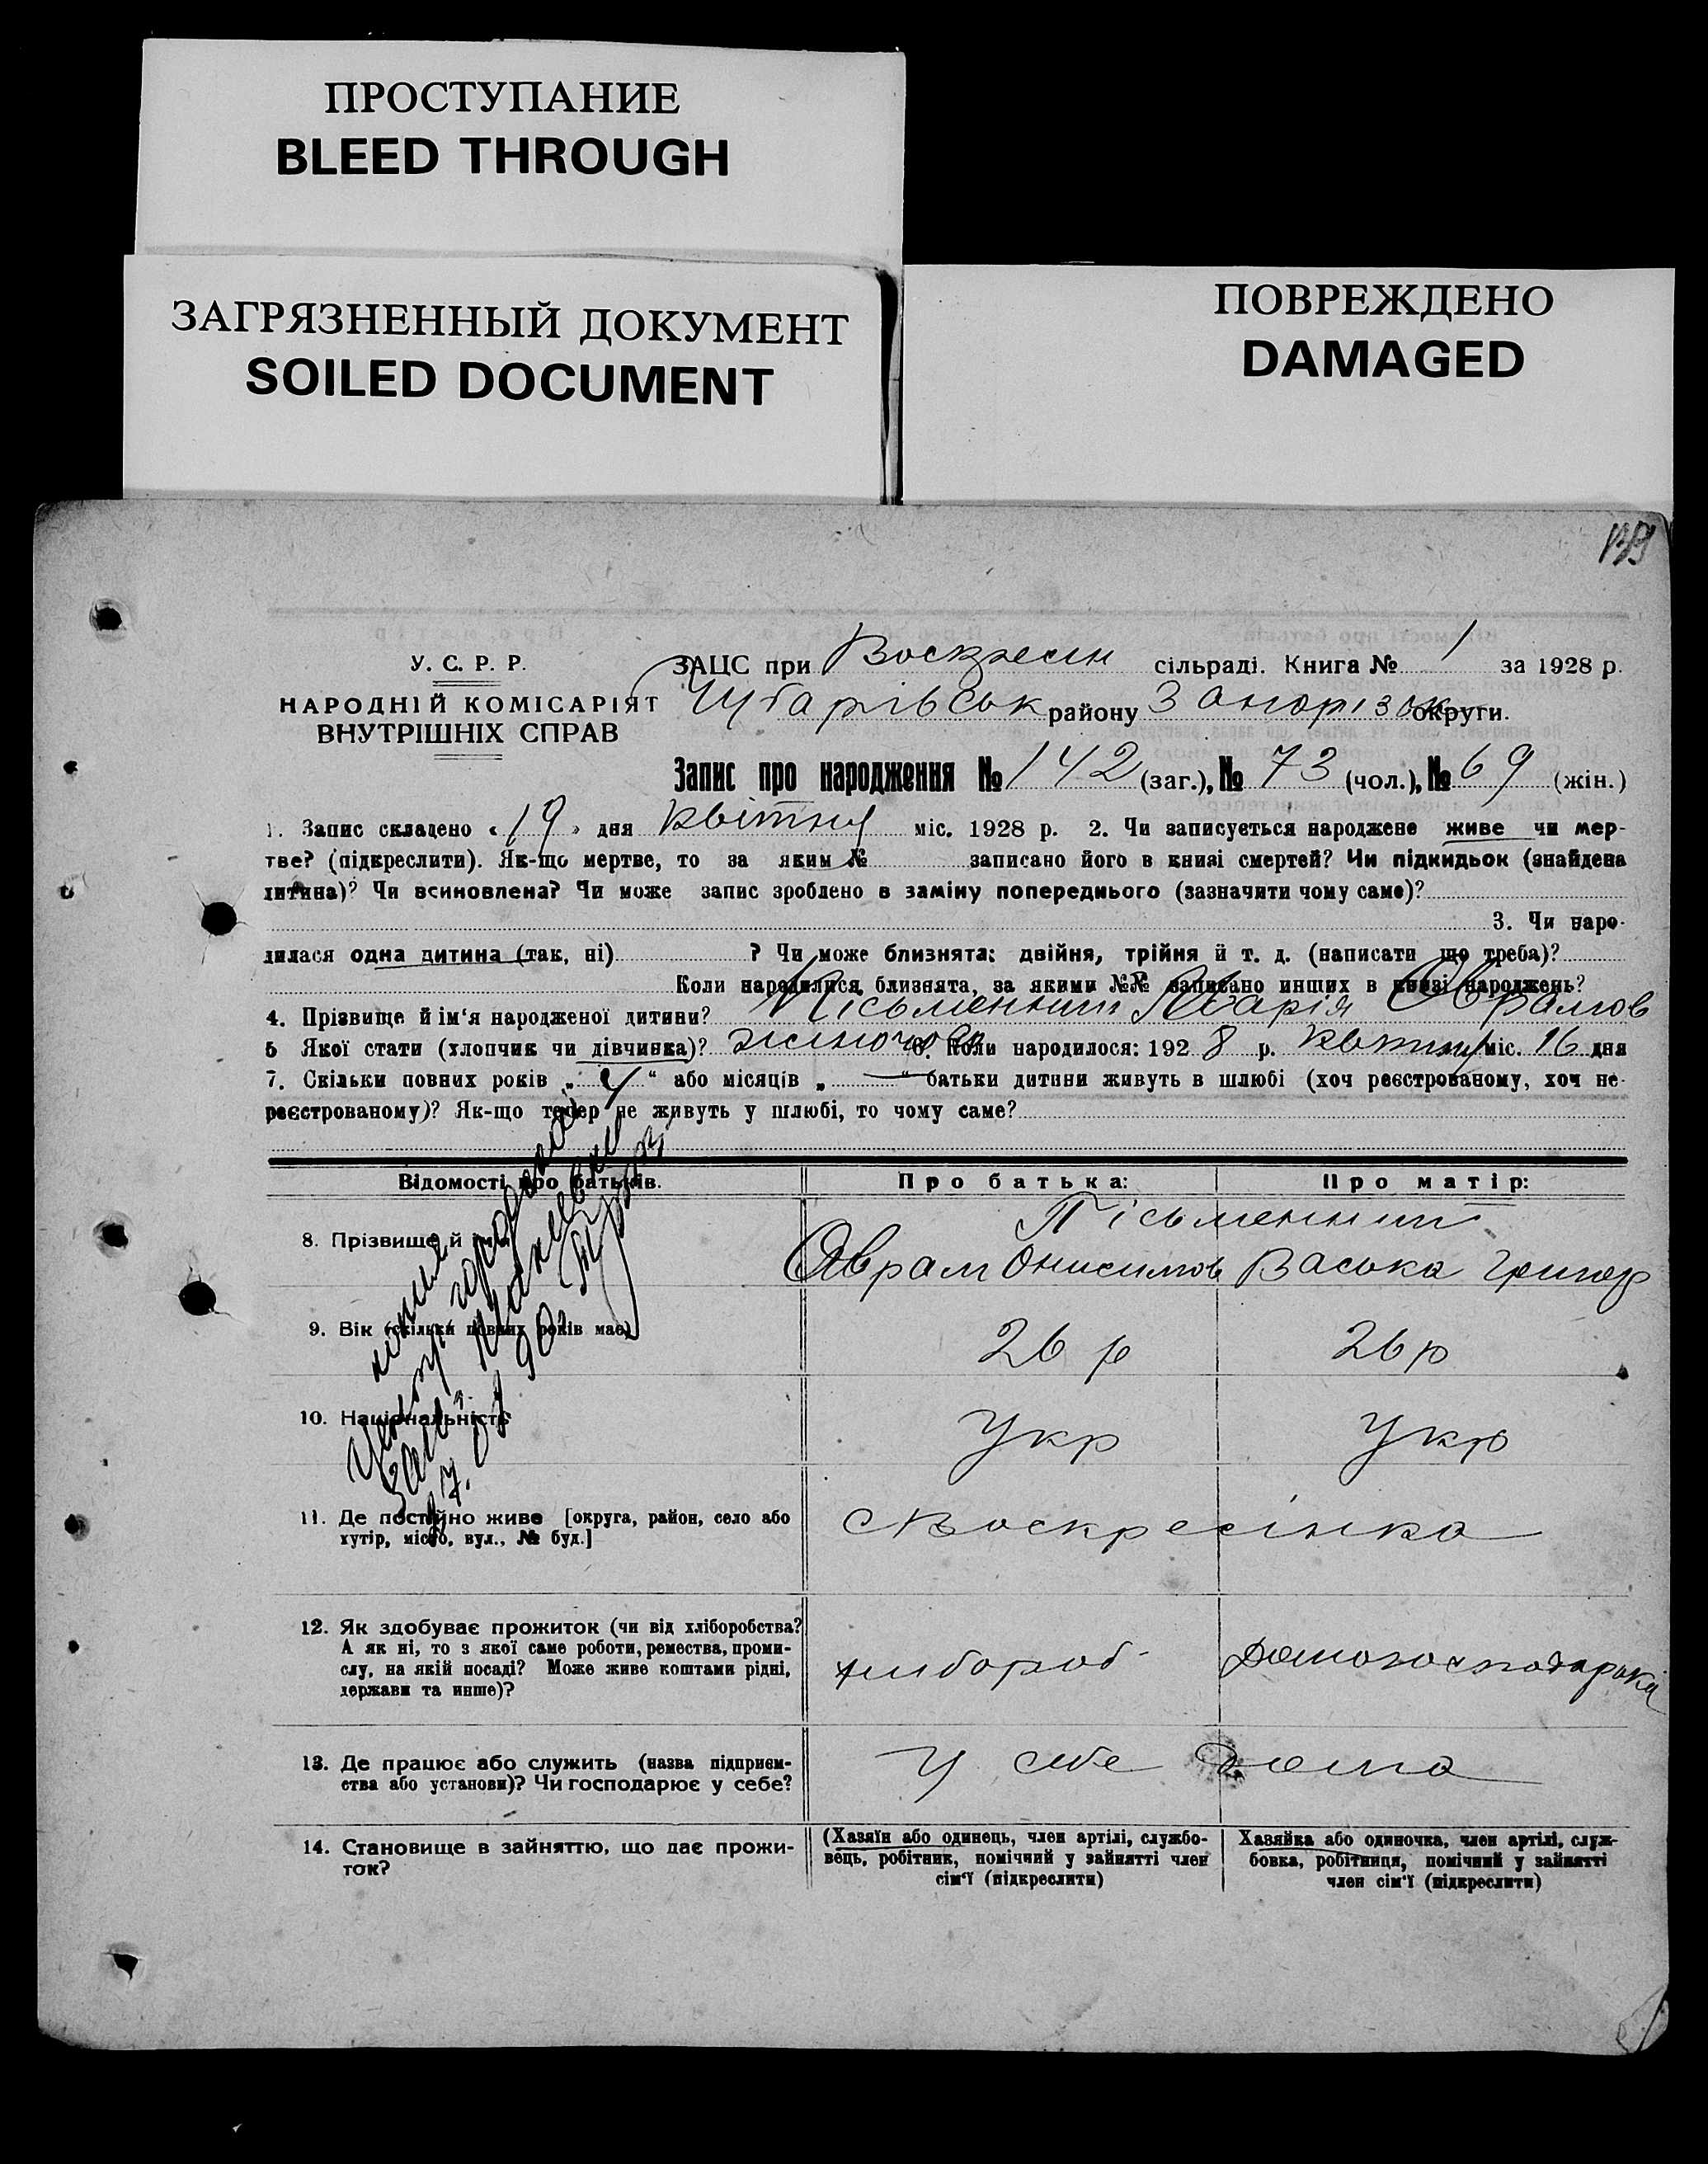 ПРОСТУПАНИЕ
BLEED THROUGH
ЗАГРЯЗНЕННЫЙ ДОКУМЕНТ
SOILED DOCUMENT
ПОВРЕЖДЕНО
DAMAGED
У. С. Р. Р.
НАРОДНІЙ КОМІСАРІЯТ
ВНУТРІШНІХ СПРАВ
ЗАЦС при Воскресен сільраді. Книга № 1 за 1928 р.
Чубарівськ району Запорізьк округи.
Запис про народження № 142 (заг.), № 73 (чол.), № 69 (жін.)
1. Запис складено « 19 » дня квітня міс. 1928 р. 2. Чи записується народжене живе чи мер-
тве? (підкреслити). Як-що мертве, то за яким № записано його в книзі смертей? Чи підкидьок (знайдена
дитина)? Чи всиновлена? Чи може запис зроблено в заміну попереднього (зазначити чому саме)?
3. Чи наро-
дилася одна дитина (так, ні) ? Чи може близнята: двійня, трійня й т. д. (написати що треба)?
Коли народилися близнята, за якими №№ записано инших в книзі народжень?
4. Прізвище й ім'я народженої дитини? Письменний Марія Аврамов
5 Якої стати (хлопчик чи дівчинка)? жіночого 6. Коли народилося: 192 8 р. квітня міс. 16 дня
7. Скільки повних років „ 4 “ або місяців „ “ батьки дитини живуть в шлюбі (хоч реєстрованому, хоч не-
реєстрованому)? Як-що тепер не живуть у шлюбі, то чому саме?
Відомості про батьків. Про батька: Про матір:
Письменний
8. Прізвище й ім'я Аврам Онисимов Васька Григор
9. Вік (скільки повних років має) 26 р 26 р
10. Національність Укр Укр
11. Де постійно живе [округа, район, село або
хутір, місто, вул., № буд.] с Воскресінка
12. Як здобуває прожиток (чи від хліборобства?
А як ні, то з якої саме роботи, ремества, проми-
слу, на якій посаді? Може живе коштами рідні,
держави та инше)? хлібороб домогосподарька
13. Де працює або служить (назва підприєм-
ства або установи)? Чи господарює у себе? У себе дома
14. Становище в зайняттю, що дає прожи-
ток?
(Хазяїн або одинець, член артілі, службо-
вець, робітник, помічний у зайнятті член
сім'ї (підкреслити)
Хазяйка або одиночка, член артілі, служ-
бовка, робітниця, помічний у зайнятті
член сім'ї (підкреслити)